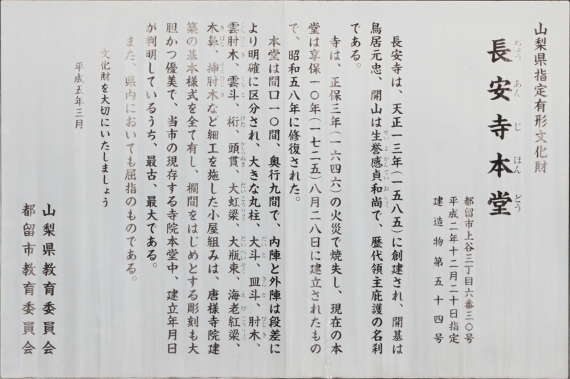 山梨県指定有形文化財
長安寺本堂
ちょう あん じ ほん どう
都留市上谷三丁目六番三〇号
平成二年十二月二十日指定
建造物第五十四号
長安寺は、天正一三年(一五八五)に創建され、開基は
鳥居元忠、開山は生誉感貞和尚で、歴代領主庇護の名刹
である。
寺は、正保三年(一六四六)の火災で焼失し、現在の本
堂は享保一〇年(一七二五)八月二八日に建立されたもの
で、昭和五八年に修復された。
本堂は間口一〇間、奥行九間で、内陣と外陣は段差に
より明確に区分され、大きな丸柱、大斗、皿斗、肘木、
雲肘木、雲斗、桁、頭貫、大虹梁、大瓶束、海老紅梁、
木鼻、挿肘木など細工を施した小屋組みは、唐様寺院建
築の基本様式を全て有し、欄間をはじめとする彫刻も大
胆かつ優美で、当市の現存する寺院本堂中、建立年月日
が判明しているうち、最古、最大である。
また、県内においても屈指のものである。
文化財を大切にいたしましょう
平成五年三月
山梨県教育委員会
都留市教育委員会